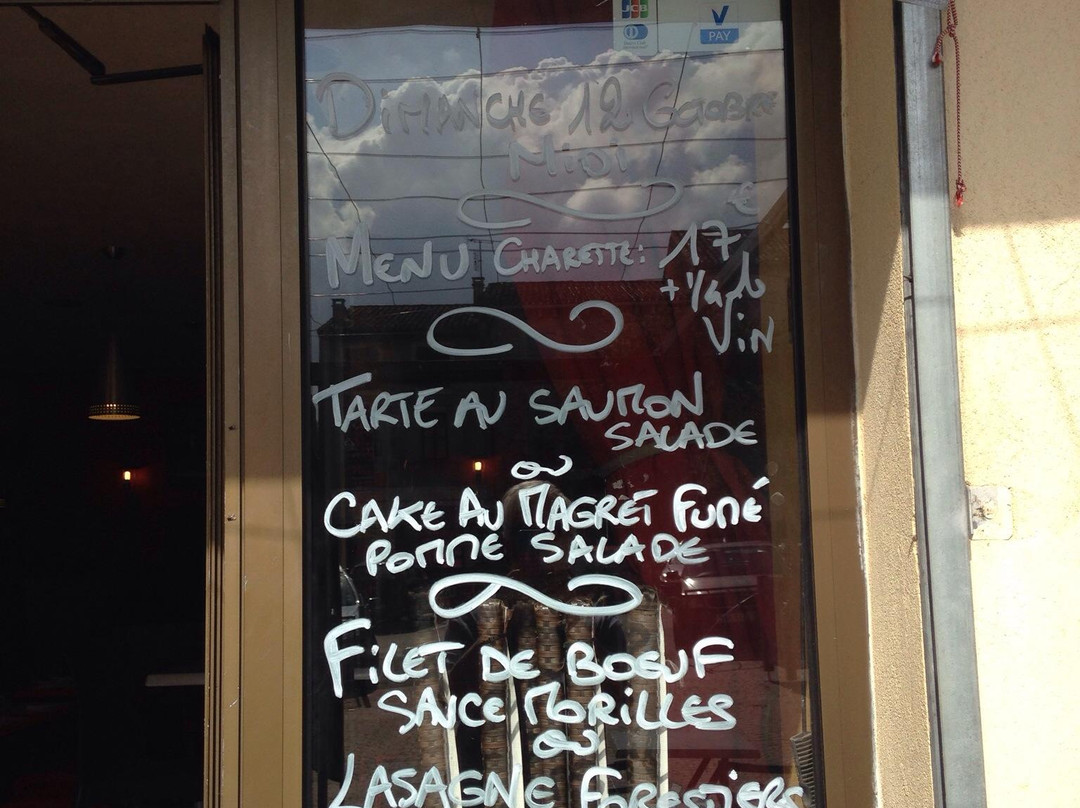 JCB
V PAY
DIMANCHE 12 OCTOBRE
MIDI
€
MENU CHARETTE: 17
+ 1/4 L
VIN
TARTE AU SAUMON
SALADE
ou
CAKE AU MAGRET FUMÉ
POMME SALADE
FILET DE BOEUF
SAUCE MORILLES
ou
LASAGNE FORESTIERS